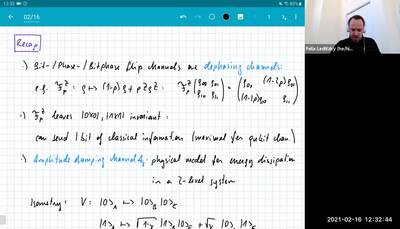 12:32
80%
02/16
Felix Leditzky (he/hi
Recap
·) Bit- / Phase- / Bitphase flip channels are dephasing channels:
e.g. F_p^Z : ρ ↦ (1-p) ρ + p Z ρ Z : F_p^Z (ρ00 ρ01 ρ10 ρ11) = (ρ00 (1-2p) ρ01 (1-2p) ρ10 ρ11)
·) F_p^Z leaves |0X0|, |1X1| invariant :
can send 1 bit of classical information (maximal for qubit chan.)
·) Amplitude damping channel physical model for energy dissipation
in a 2-level system
Isometry: V: |0>_A ↦ |0>_B |0>_E
|1>_A ↦ √1-γ |1>_B |0>_E + √γ |0>_B |1>_E
2021-02-16 12:32:44